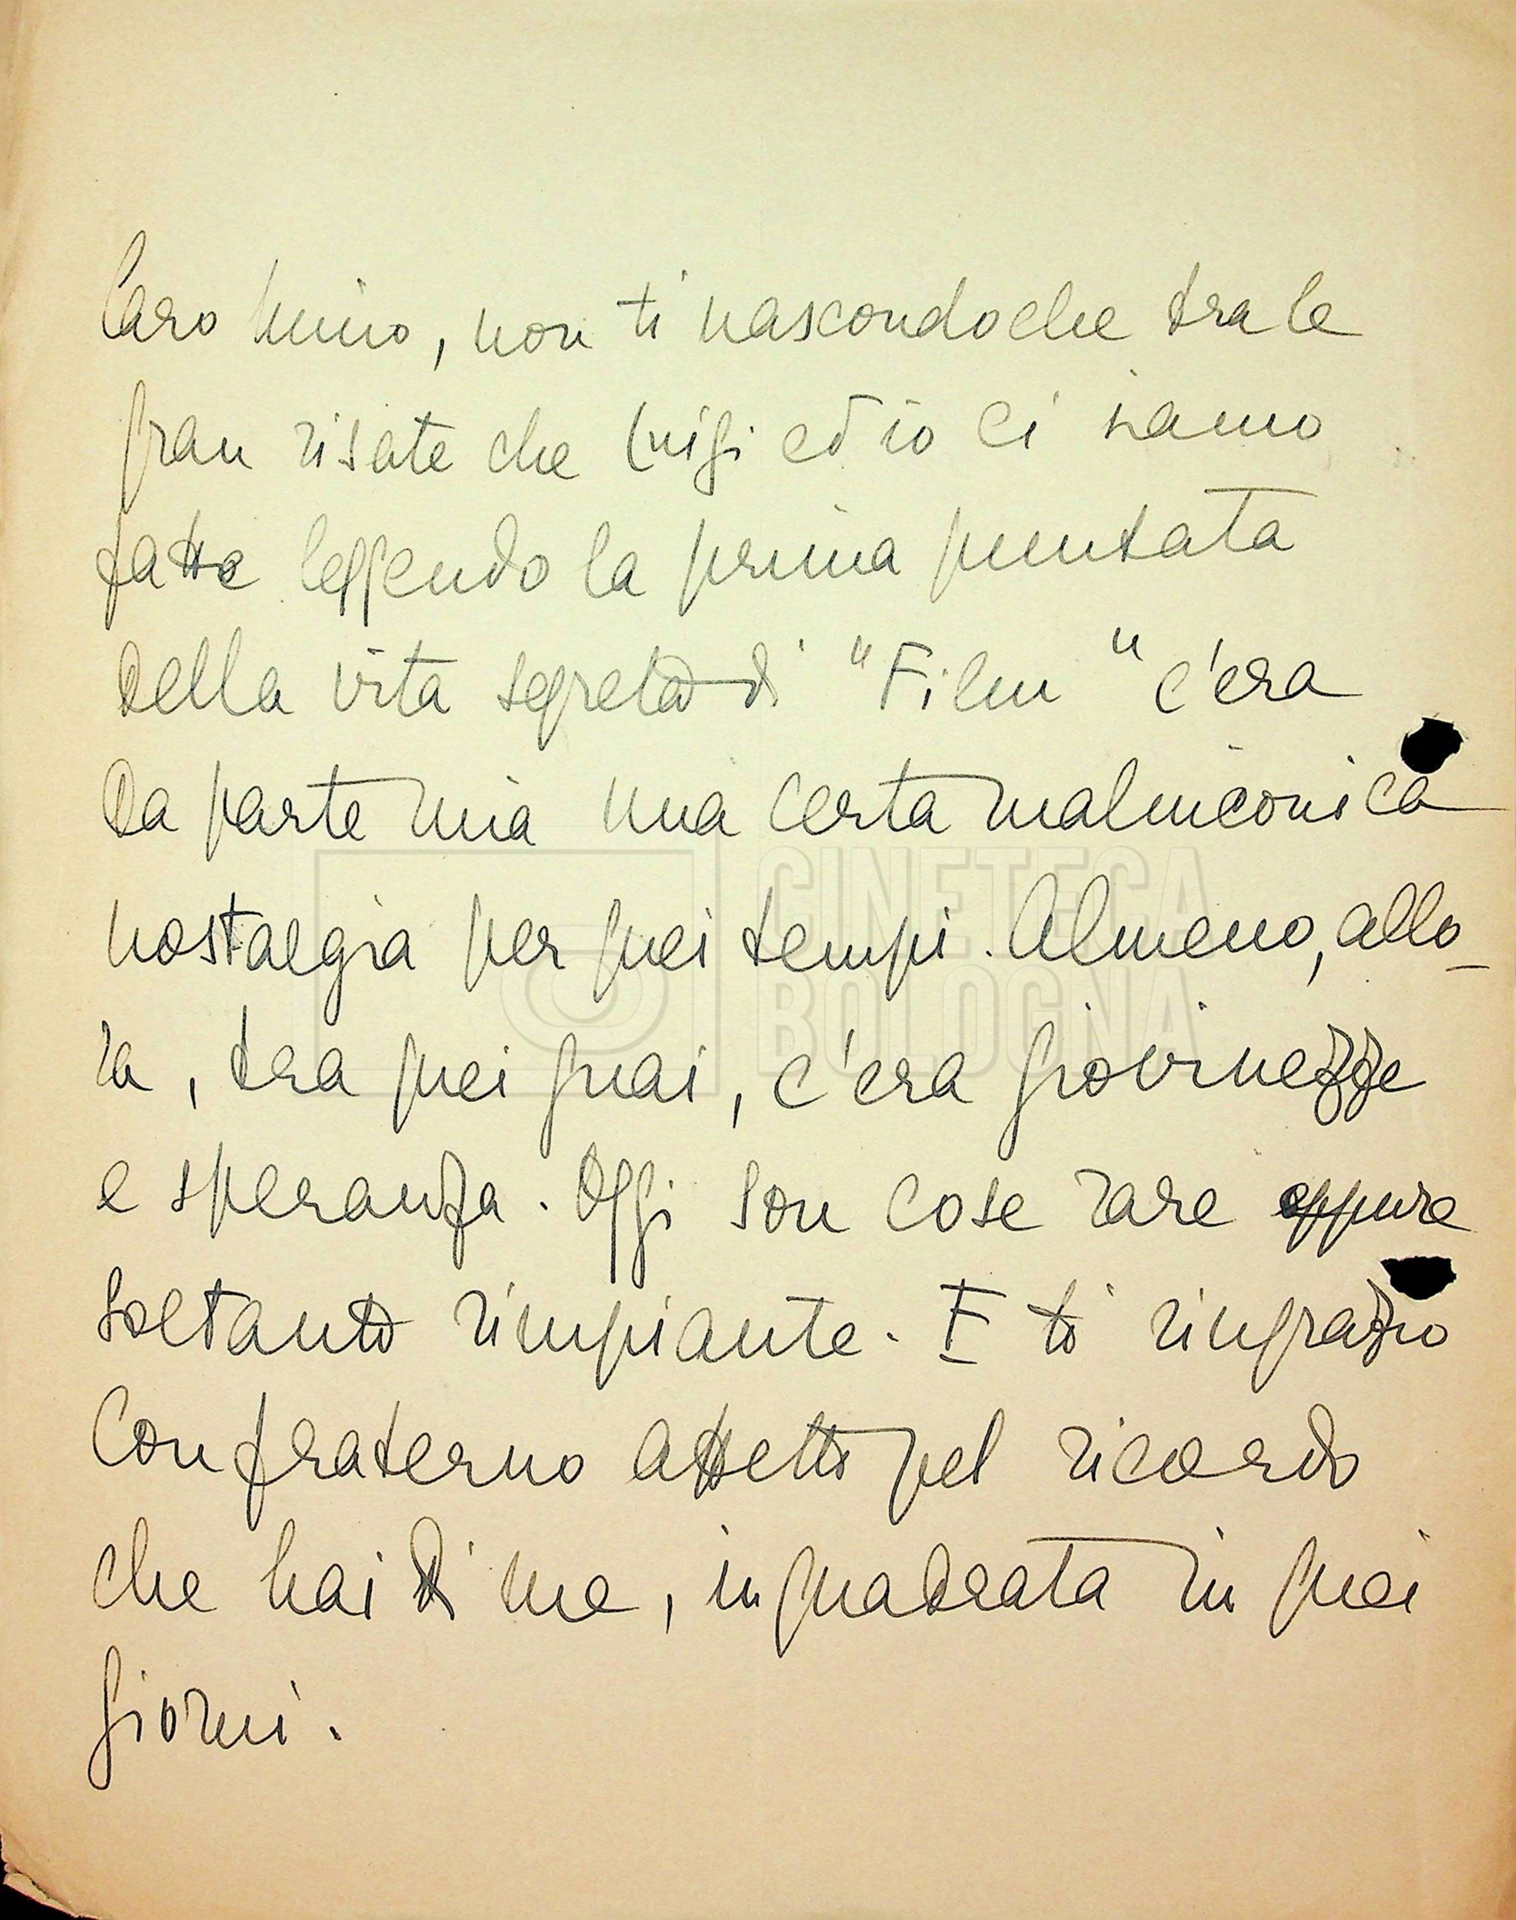 Caro Mino, non ti nascondo che tra le
gran risate che Luigi ed io ci siamo
fatte leggendo la prima puntata
della vita segreta di "Film" c'era
da parte mia una certa malinconica
nostalgia per quei tempi. Almeno, allo-
ra, tra quei guai, c'era giovinezze
e speranza. Oggi son cose rare eppure
soltanto rimpiante. E ti ringrazio
con fraterno affetto pel ricordo
che hai di me, inquadrata in quei
giorni.
CINETECA
BOLOGNA